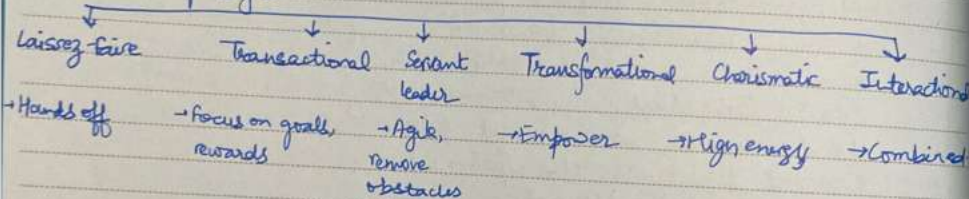 Laissez-faire Transactional Servant leader Transformational Charismatic Interaction
→Hands off →Focus on goals, rewards →Agile, remove obstacles →Empower →High energy →Combined